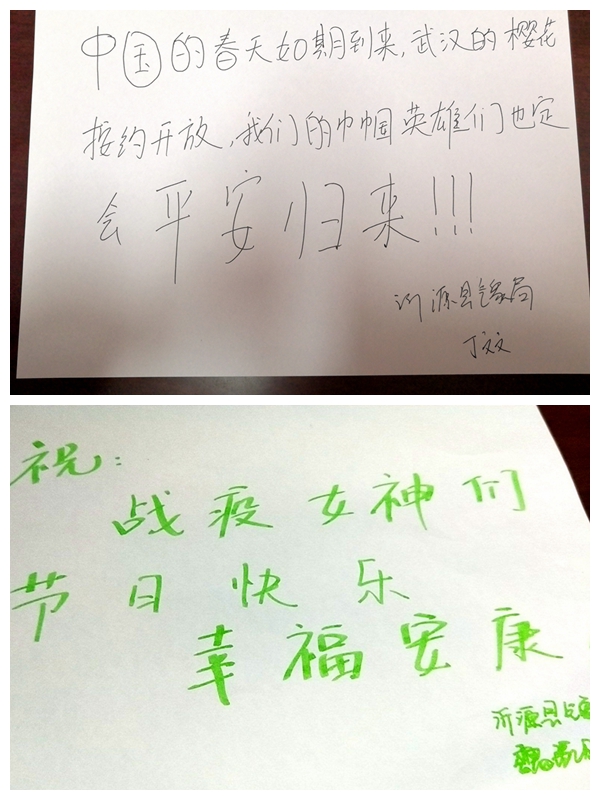 中国的春天如期到来,武汉的樱花
按约开放,我们的巾帼英雄们也定
会平安归来!!!
沂源县气象局
丁文文
祝:
战疫女神们
节日快乐
幸福安康
沂源县气